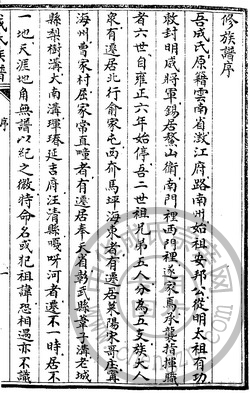 修族譜序
吾戚氏原籍雲南省澂江府路南州始祖安邦公從明太祖有功
敕封明威將軍錫居鰲山衛南門裡西門裡遂家焉承襲指揮職
者六世自雍正六年始停吾二世祖兄弟五人分為五支族大人
衆有遷居北行俞家屯西喬馬坪海東者有遷居萊陽宋哥庄
海州曹家村居家常直疃者有遷居奉天省武縣葦子溝老城
縣梨樹溝大南溝琿春延吉府汪清縣嘎呀河者遷不一時居不
一地天涯地角無譜以紀之微特命名或犯祖諱相遇亦不識
戚氏族譜
序
一